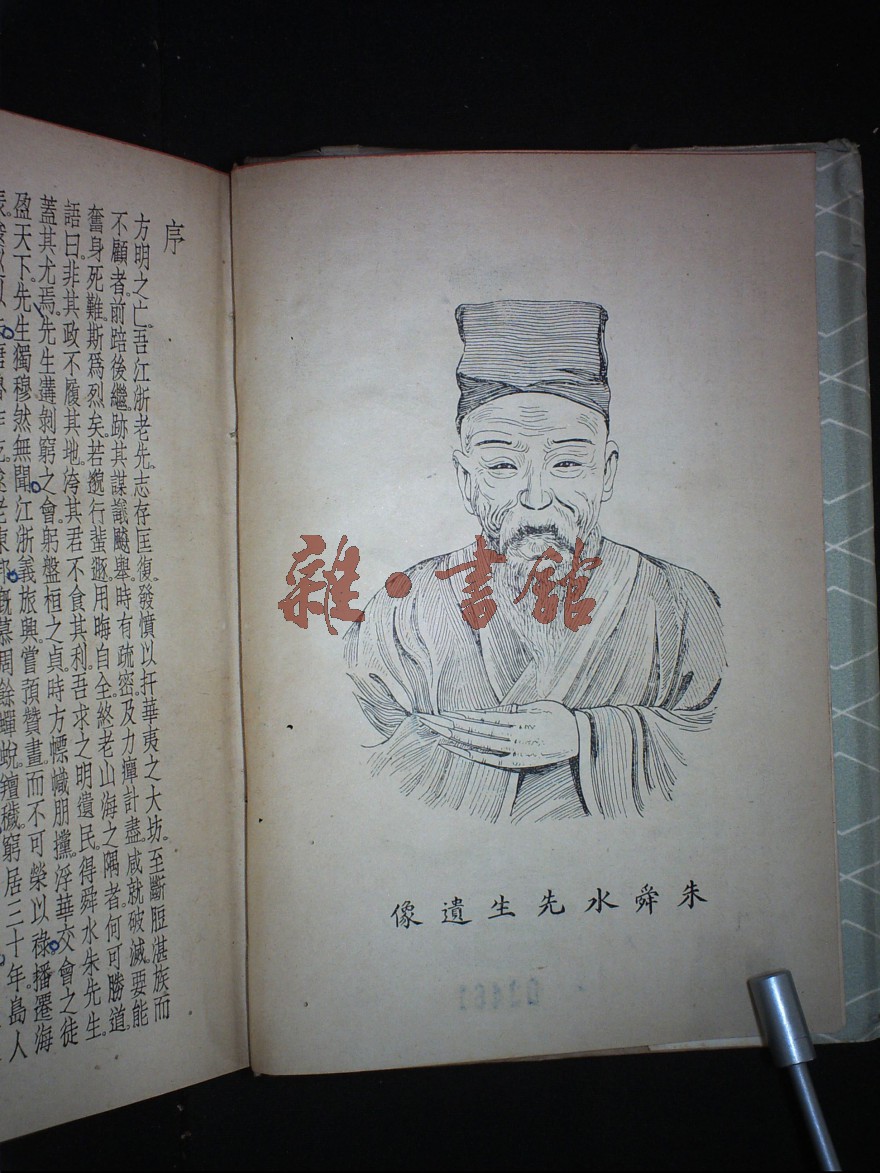 序
方明之亡。吾江浙老先。志存匡復。發憤以扞華夷之大坊。至斷脰湛族而
不顧者。前踣後繼。跡其謀議飈舉。時有疏密。及力癉計盡。咸就破滅。要能
奮身死難。斯爲烈矣。若邈行蜚遯。用晦自全。終老山海之隅者。何可勝道。
語曰。非其政不履其地。洿其君不食其利。吾求之明遺民。得舜水朱先生。
蓋其尤焉。先生遘剝窮之會。躬盤桓之貞。時方幖幟朋攩。浮華交會之徒
盈天下。先生獨穆然無聞。江浙義旅興。嘗預贊畫。而不可榮以祿。播遷海
老東
慕
餘蟬蛻
穢。窮居三十年。島人
朱舜水先生遺像
雜·書館